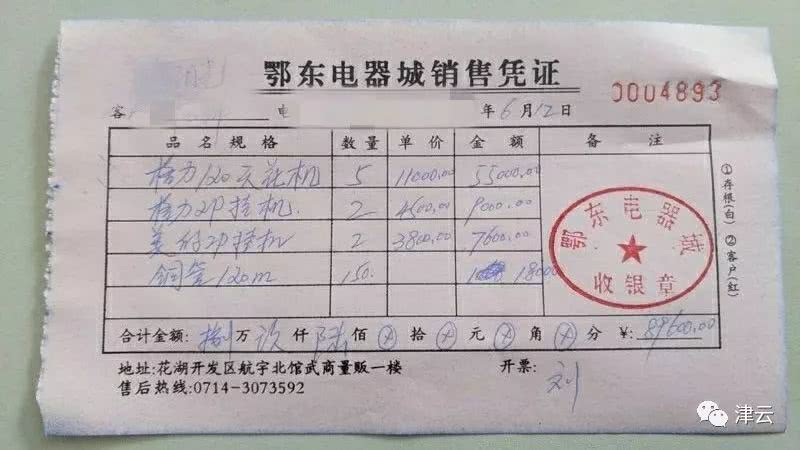 鄂东电器城销售凭证
0004893
客 电 年6月12日
品名规格 数量 单价 金额 备注
格力120天花机 5 11000.00 55000.00
格力2P挂机. 2 4500.00 9000.00
美的2P挂机 2 3800.00 7600.00
铜管120m 150. 18000
鄂东电器城
收银章
①存根(白) ②客户(红)
合计金额: 捌万玖仟陆佰⊗拾⊗元⊗角⊗分 ¥: 89600.00
地址:花湖开发区航宇北馆武商量贩一楼 开票: 刘
售后热线:0714-3073592
津云